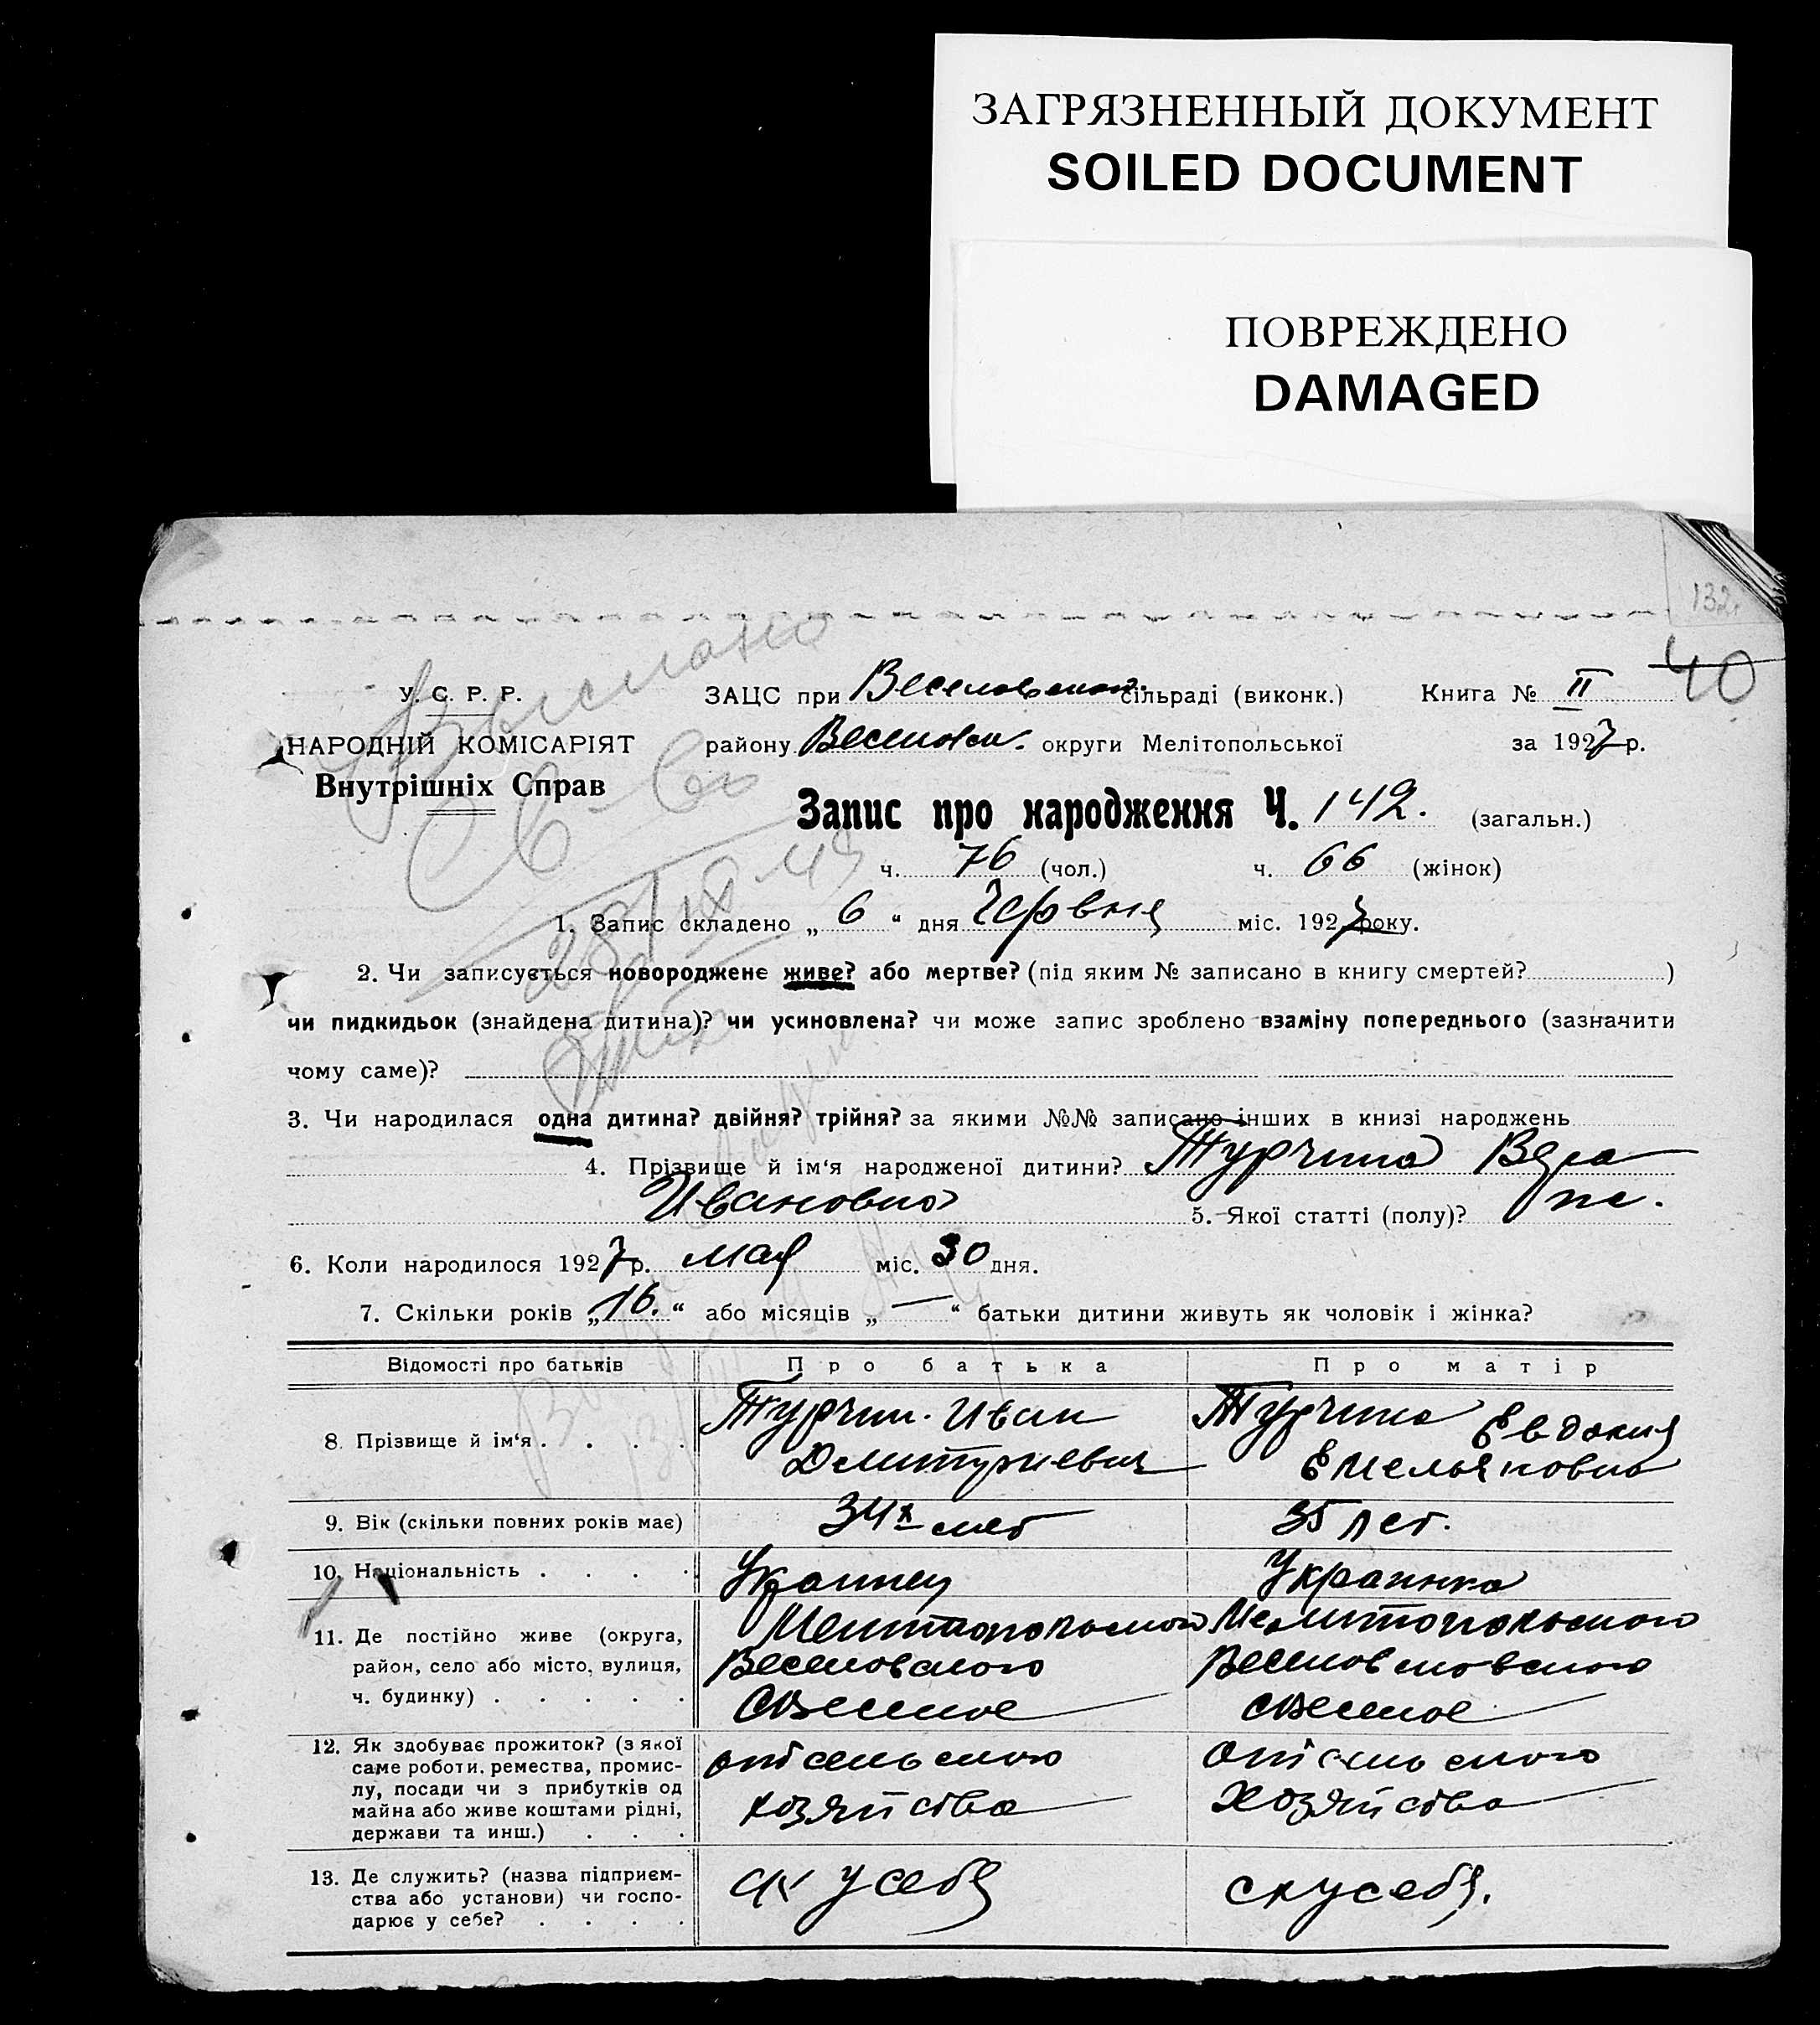 ЗАГРЯЗНЕННЫЙ ДОКУМЕНТ
SOILED DOCUMENT
ПОВРЕЖДЕНО
DAMAGED
132
40
У. С. Р. Р.
НАРОДНІЙ КОМІСАРІЯТ
Внутрішніх Справ
Выслано
Св-во
ЗАЦС при Веселовском сільраді (виконк.) Книга № II
району Веселовск. округи Мелітопольської за 1927 р.
Запис про народження Ч. 142. (загальн.)
ч. 76 (чол.) ч. 66 (жінок)
1. Запис складено „ 6 “ дня Червня міс. 1927 року.
2. Чи записується новороджене живе? або мертве? (під яким № записано в книгу смертей? )
чи пидкидьок (знайдена дитина)? чи усиновлена? чи може запис зроблено взаміну попереднього (зазначити
чому саме)?
3. Чи народилася одна дитина? двійня? трійня? за якими №№ записано інших в книзі народжень
4. Прізвище й ім‘я народженої дитини? Турчина Вера
Ивановна 5. Якої статті (полу)? ж.
6. Коли народилося 1927 р. мая міс. 30 дня.
7. Скільки років „ 16. “ або місяців „ — “ батьки дитини живуть як чоловік і жінка?
Відомості про батьків Про батька Про матір
8. Прізвище й ім‘я . . . . Турчин Иван Турчина Евдокия
Дмитриевич Емельяновна
9. Вік (скільки повних років має) 34х лет 35 лет.
10. Національність . . . . Украинец Украинка
11. Де постійно живе (округа, Мелитопольского Мелитопольского
район, село або місто, вулиця, Веселовского Веселовсковского
ч. будинку) . . . . . с Веселое с Веселое
12. Як здобуває прожиток? (з якої от сельского от сельского
саме роботи, ремества, промис-
лу, посади чи з прибутків од хозяйства хозяйства
майна або живе коштами рідні,
держави та инш.) . . .
13. Де служить? (назва підприєм- с/х у себя с х у себя.
ства або установи) чи госпо-
дарює у себе? . . . .